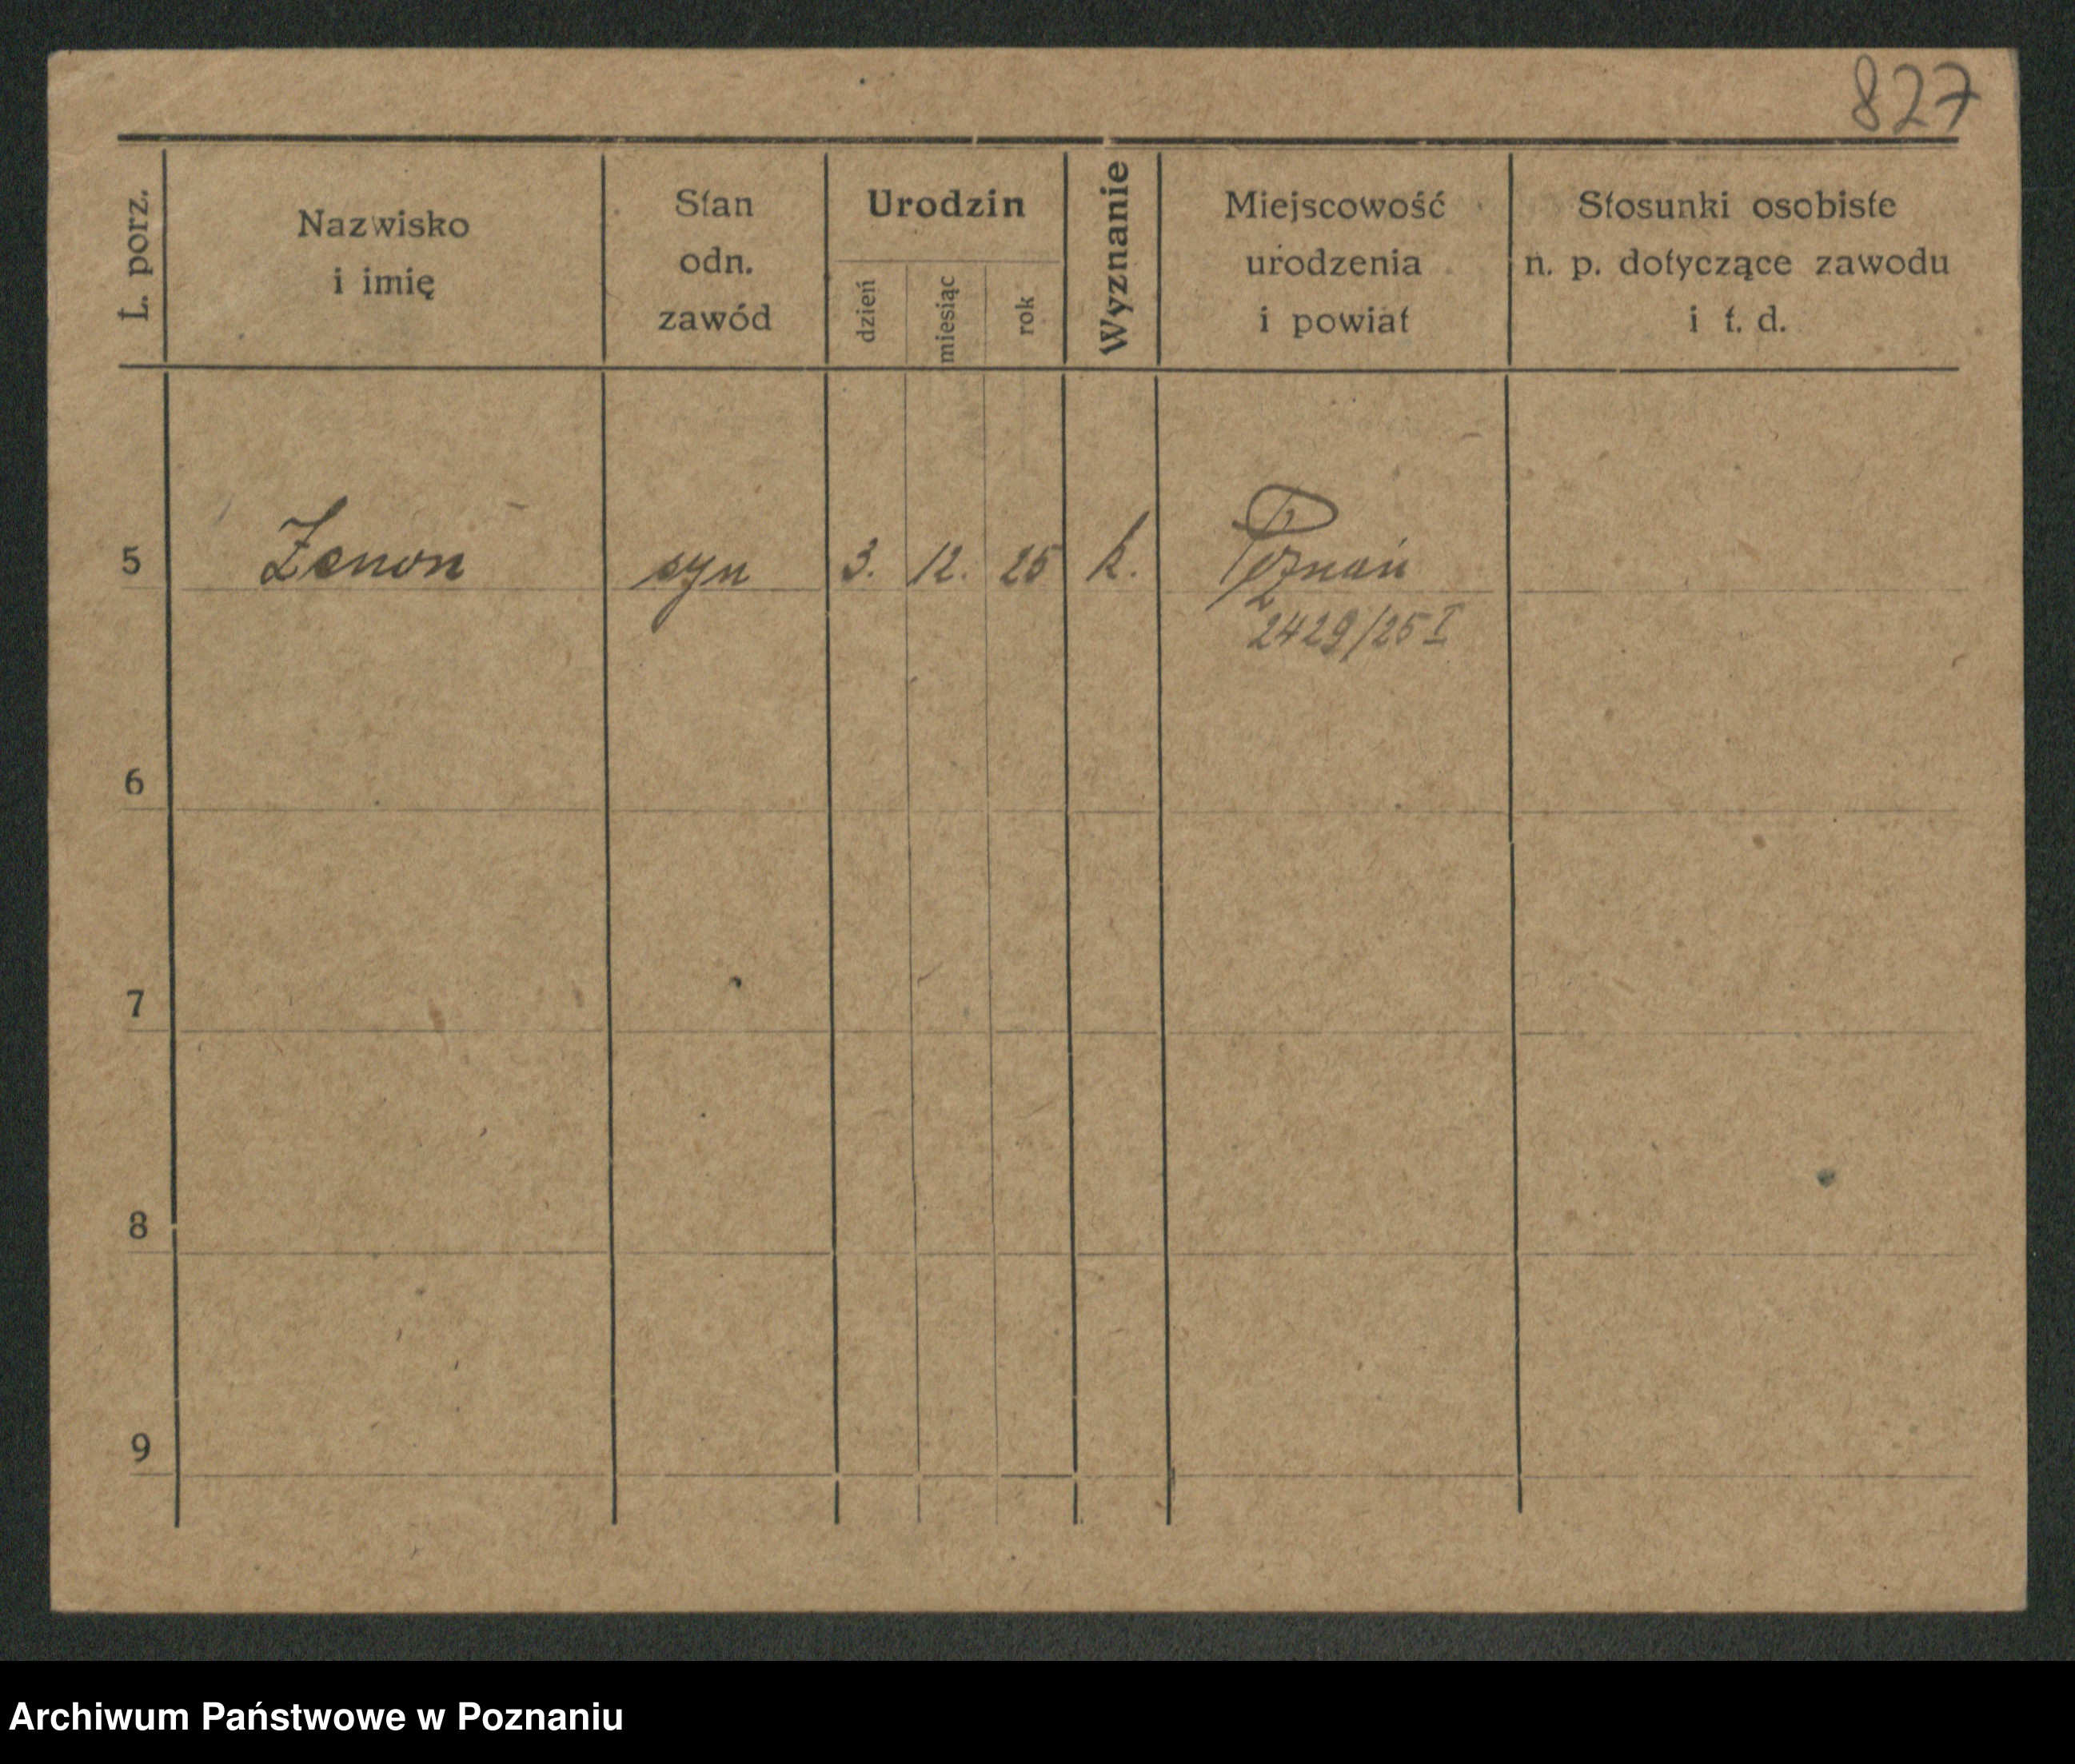 827
L. porz.
Nazwisko
i imię
Stan
odn.
zawód
Urodzin
dzień
miesiąc
rok
Wyznanie
Miejscowość
urodzenia
i powiat
Stosunki osobiste
n. p. dotyczące zawodu
i t. d.
5 Zenon syn 3. 12. 25 k. Poznań
2429/25 I
6
7
8
9
Archiwum Państwowe w Poznaniu